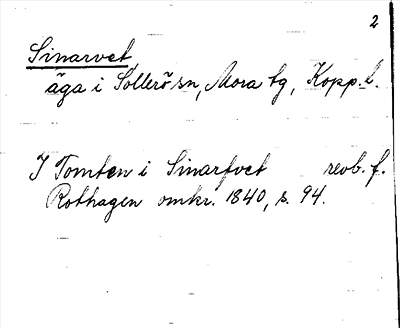 2
Sinarvet
äga i Sollerö sn, Mora tg, Kopp. l.
I Tomten i Sinarfvet revb. f.
Rothagen omkr. 1840, s. 94.